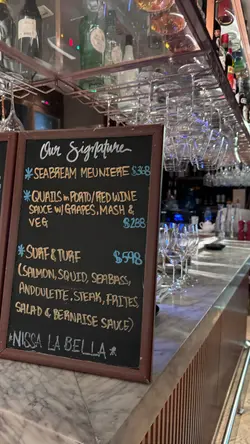 Our Signature
*SEABREAM MEUNIERE $308
*QUAILS in PORTO/RED WINE
SAUCE W/ GRAPES, MASH &
VEG $288
*SURF & TURF $598
(SALMON, SQUID, SEABASS,
ANDOULETTE, STEAK, FRITES
SALAD & BERNAISE SAUCE)
*NISSA LA BELLA*